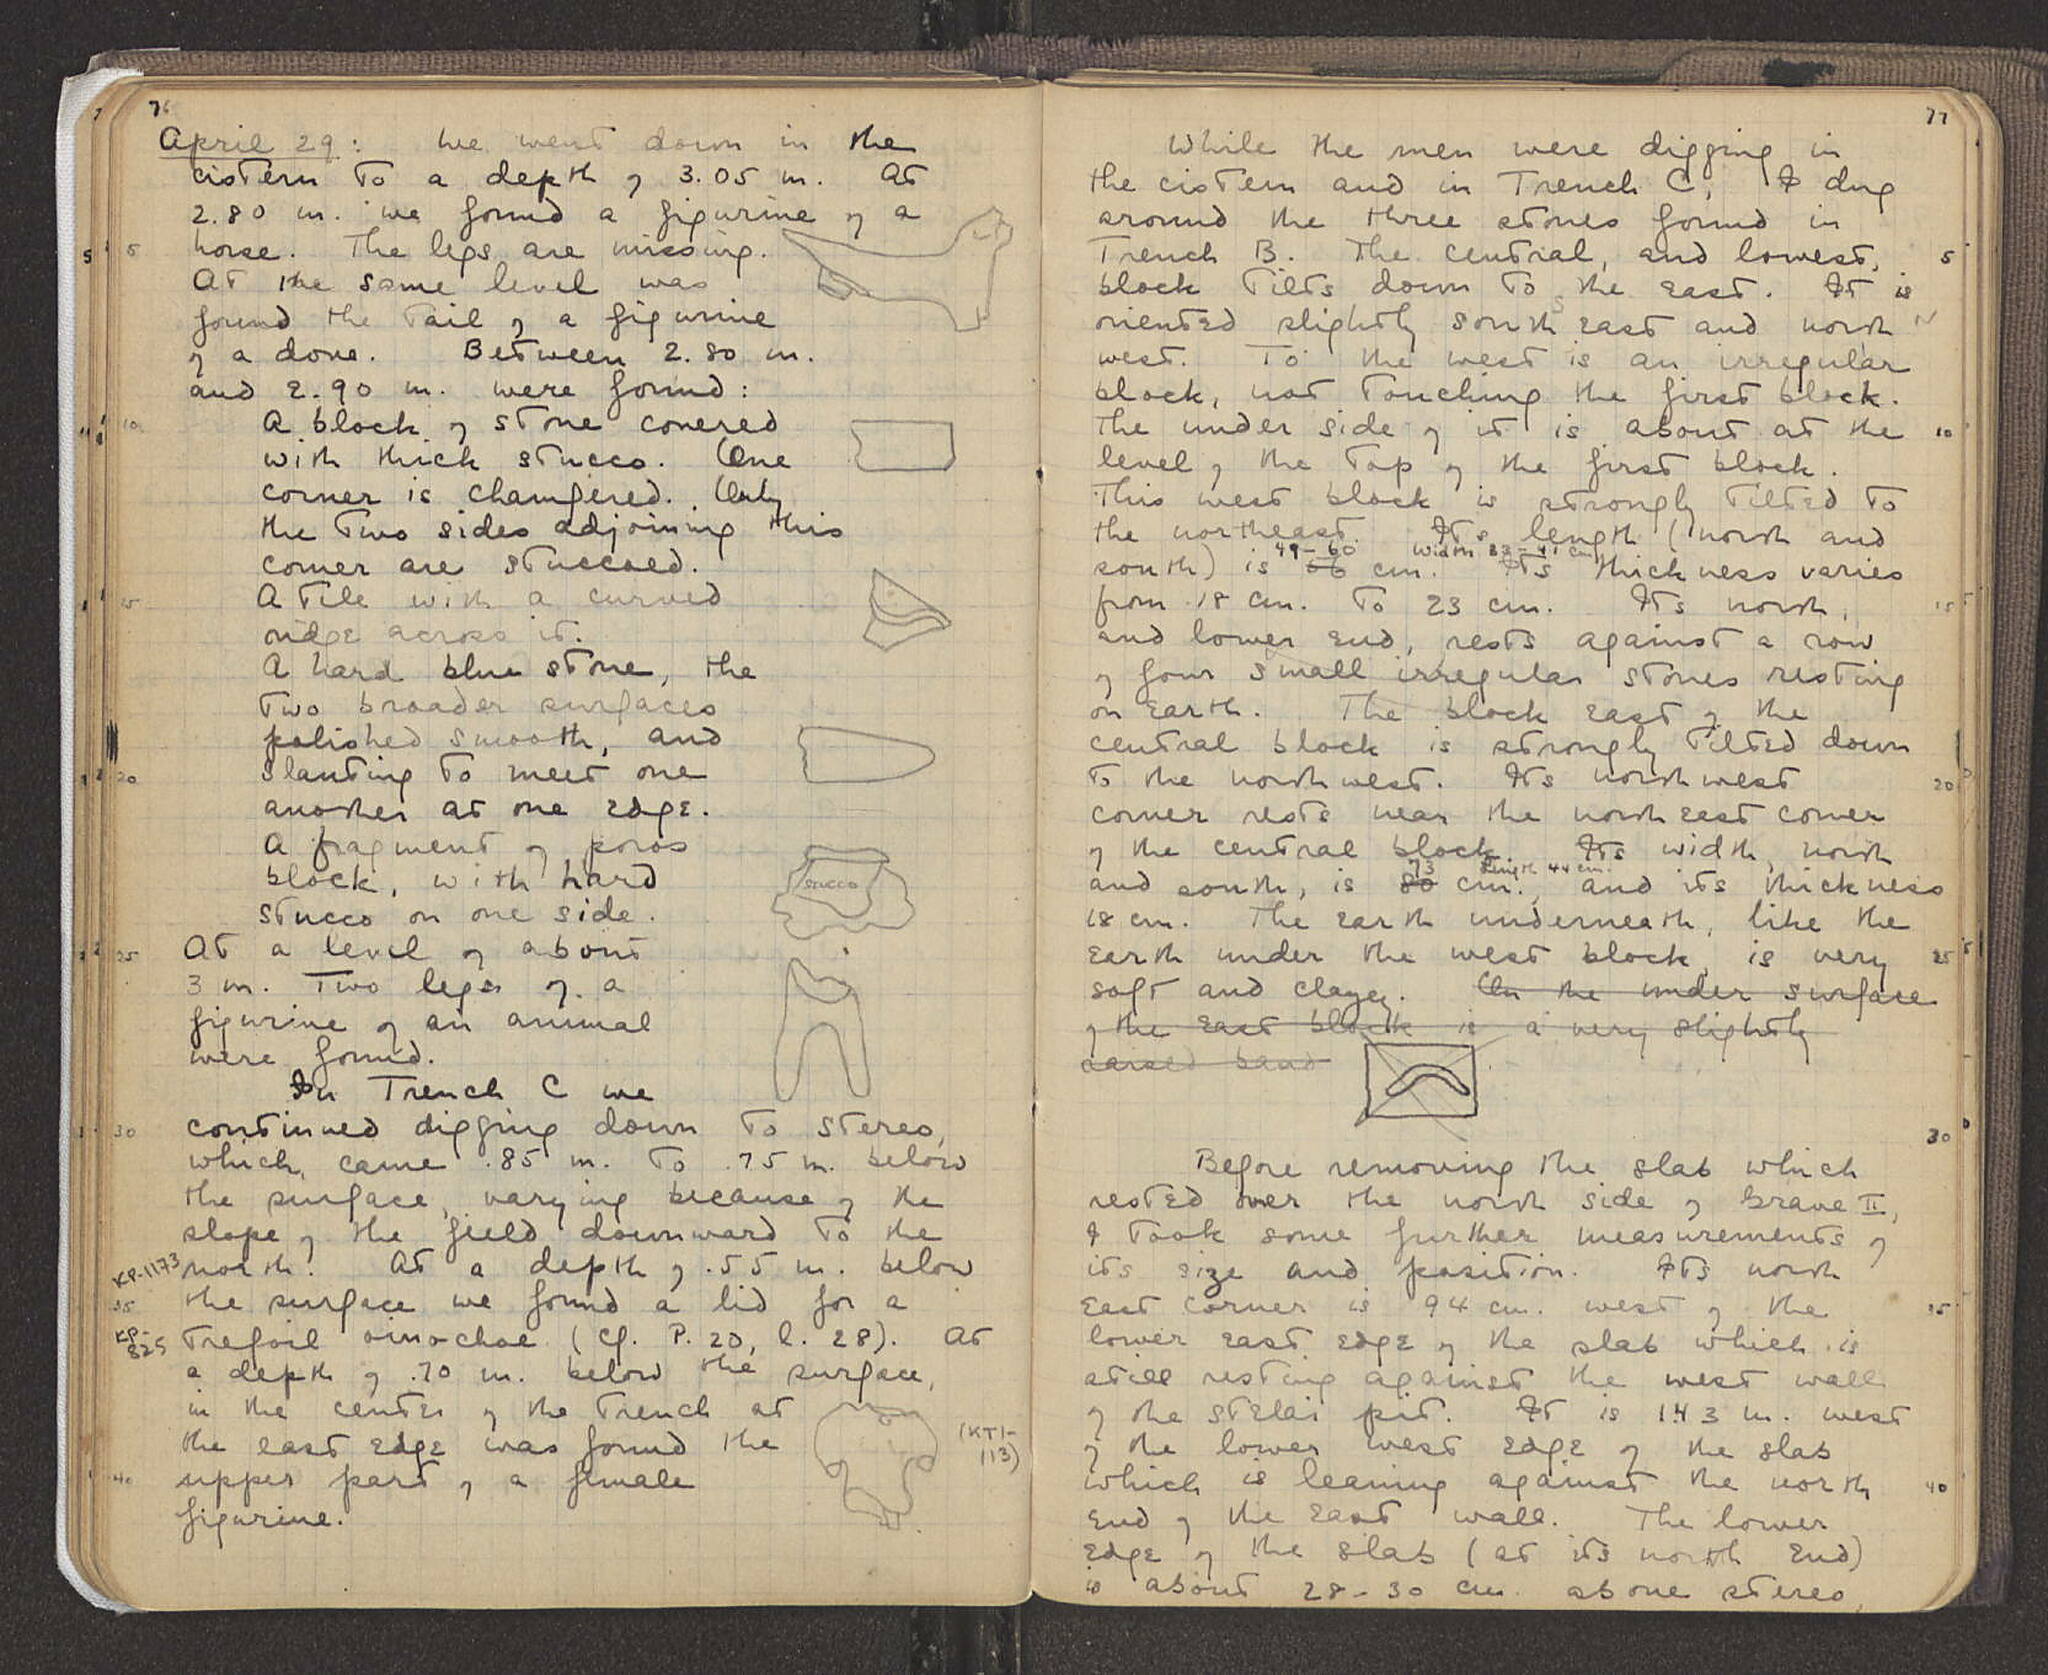 76
April 29: We went down in the
cistern to a depth of 3.05 m. At
2.80 m. we found a figurine of a
5 horse. The legs are missing.
At the same level was
found the tail of a figurine
of a dove. Between 2.80 m.
and 2.90 m. were found:
10 A block of stone covered
with thick stucco. One
corner is chamfered. Only
the two sides adjoining this
corner are stuccoed.
15 A tile with a curved
ridge across it.
A hard blue stone, the
two broader surfaces
polished smooth, and
20 slanting to meet one
another at one edge.
A fragment of poros
block, with hard
stucco
stucco on one side.
25 At a level of about
3 m. two legs of a
figurine of an animal
were found.
In Trench C we
30 continued digging down to stereo,
which came .85 m. to .75 m. below
the surface, varying because of the
slope of the field downward to the
KP-1173 north. At a depth of .55 m. below
35 the surface we found a lid for a
KP-825 trefoil oinochoe (cf. P. 20, l. 28). At
a depth of .70 m. below the surface,
in the center of the trench at
the east edge was found the (KT1-113)
40 upper part of a female
figurine.
77
While the men were digging in
the cistern and in Trench C, I dug
around the three stones found in
Trench B. The central, and lowest, 5
block tilts down to the east. It is
oriented slightly south east and north N
west. To the west is an irregular
block, not touching the first block.
The under side of it is about at the 10
level of the top of the first block.
This west block is strongly tilted to
the northeast. Its length (north and
49-60 width 33-41 cm
south) is 66 cm. Its thickness varies
from 18 cm. to 23 cm. Its north, 15
and lower end, rests against a row
of four small irregular stones resting
on earth. The block east of the
central block is strongly tilted down
to the northwest. Its northwest 20
corner rests near the north east corner
of the central block. Its width, north
73 Length 44 cm.
and south, is 80 cm., and its thickness
18 cm. The earth underneath, like the
earth under the west block, is very 25
soft and clayey. On the under surface
of the east block is a very slightly
raised band
30
Before removing the slab which
rested over the north side of Grave II,
I took some further measurements of
its size and position. Its north
east corner is 94 cm. west of the 35
lower east edge of the slab which is
still resting against the west wall
of the stelai pit. It is 1.43 m. west
of the lower west edge of the slab
which is leaning against the north 40
end of the east wall. The lower
edge of the slab (at its north end)
is about 28-30 cm. above stereo,